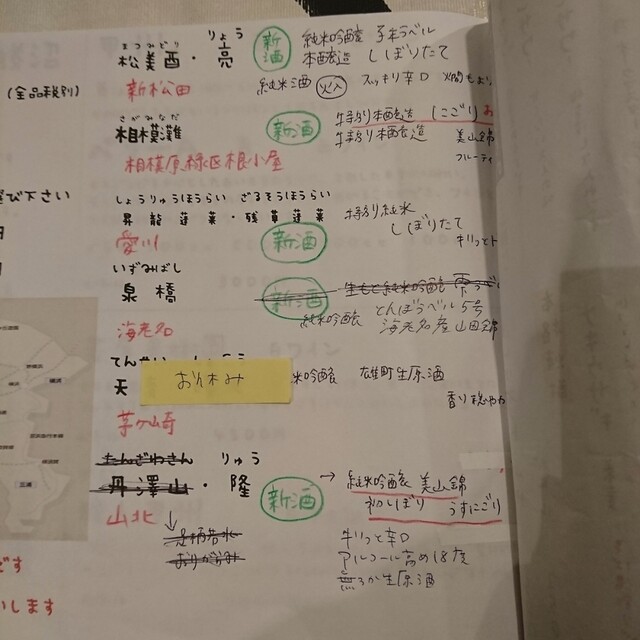 まつみどり りょう
松美酉・亮 新酒 純米吟醸
本醸造 しぼりたて
(全品税別) 新松田 純米酒 火入 スッキリ辛口
さがみなだ
相模灘 新酒 特別本醸造 にごり
特別本醸造 美山錦
フルーティ
相模原緑区根小屋
び下さい しょうりゅうほうらい ざるそうほうらい
昇龍蓬莱・残草蓬莱 特別純米
しぼりたて
愛川 新酒 キリッと
いずみばし
泉橋 新酒 生もと純米吟醸
純米吟醸 とんぼラベル5号
海老名産山田錦
海老名
天 お休み 米吟醸 雄町生原酒
香り穏やか
茅ヶ崎
たんざわさん りゅう
丹澤山・隆 新酒 → 純米吟醸 美山錦
初しぼり うすにごり
山北 ↓
キリッと辛口
アルコール高め18度
無ろか生原酒
です
いします